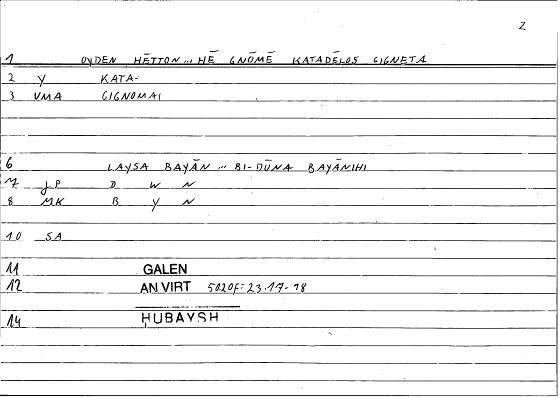 2
1 OYDEN HĒTTON... HĒ GNŌMĒ KATADĒLOS GIGNETA
2 Y KATA-
3 VMA GIGNOMAI
6 LAYSA BAYĀN ... BI-DŪNA BAYĀNIHI
7 JP D W N
8 MK B Y N
10 SA
11 GALEN
12 AN VIRT 5020F: 23.17-18
14 ḤUBAYSH